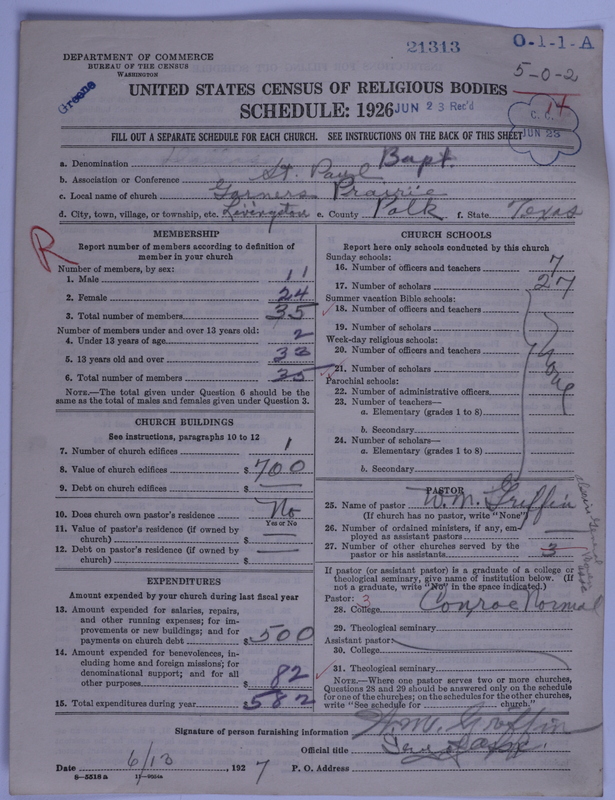 21313
O-1-1-A
5-0-2
DEPARTMENT OF COMMERCE
BUREAU OF THE CENSUS
WASHINGTON
Greene
UNITED STATES CENSUS OF RELIGIOUS BODIES
SCHEDULE: 1926
JUN 23 Rec'd
14
C. C.
JUN 23
FILL OUT A SEPARATE SCHEDULE FOR EACH CHURCH. SEE INSTRUCTIONS ON THE BACK OF THIS SHEET
a. Denomination Bapt.
b. Association or Conference St. Paul
c. Local name of church Garners Prairie
d. City, town, village, or township, etc. Livingston e. County Polk f. State Texas
R
MEMBERSHIP
Report number of members according to definition of
member in your church
Number of members, by sex:
1. Male 11
2. Female 24
3. Total number of members 35
Number of members under and over 13 years old:
4. Under 13 years of age 2
5. 13 years old and over 33
6. Total number of members 35
NOTE.—The total given under Question 6 should be the
same as the total of males and females given under Question 3.
CHURCH BUILDINGS
See instructions, paragraphs 10 to 12
7. Number of church edifices 1
8. Value of church edifices $700
9. Debt on church edifices $ —
10. Does church own pastor's residence? No
Yes or No
11. Value of pastor's residence (if owned by
church) $ —
12. Debt on pastor's residence (if owned by
church) $ —
EXPENDITURES
Amount expended by your church during last fiscal year
13. Amount expended for salaries, repairs,
and other running expenses; for im-
provements or new buildings; and for
payments on church debt $500
14. Amount expended for benevolences, in-
cluding home and foreign missions; for
denominational support; and for all
other purposes $82
15. Total expenditures during year $582
CHURCH SCHOOLS
Report here only schools conducted by this church
Sunday schools:
16. Number of officers and teachers 7
17. Number of scholars 27
Summer vacation Bible schools:
18. Number of officers and teachers
19. Number of scholars
Week-day religious schools:
20. Number of officers and teachers
21. Number of scholars
None
Parochial schools:
22. Number of administrative officers
23. Number of teachers—
a. Elementary (grades 1 to 8)
b. Secondary
24. Number of scholars—
a. Elementary (grades 1 to 8)
b. Secondary
PASTOR
25. Name of pastor W. M. Griffin
(If church has no pastor, write "None")
26. Number of ordained ministers, if any, em-
ployed as assistant pastors —
27. Number of other churches served by the
pastor or his assistants 3
If pastor (or assistant pastor) is a graduate of a college or
theological seminary, give name of institution below. (If
not a graduate, write "No" in the space indicated.)
Pastor: 3
28. College Conroe Normal
29. Theological seminary
Assistant pastor:
30. College
31. Theological seminary
NOTE.—Where one pastor serves two or more churches,
Questions 28 and 29 should be answered only on the schedule
for one of the churches; on the schedules for the other churches,
write "See schedule for church."
Signature of person furnishing information W. M. Griffin
Official title
Date 6/13, 1927 P. O. Address
8—5518 a